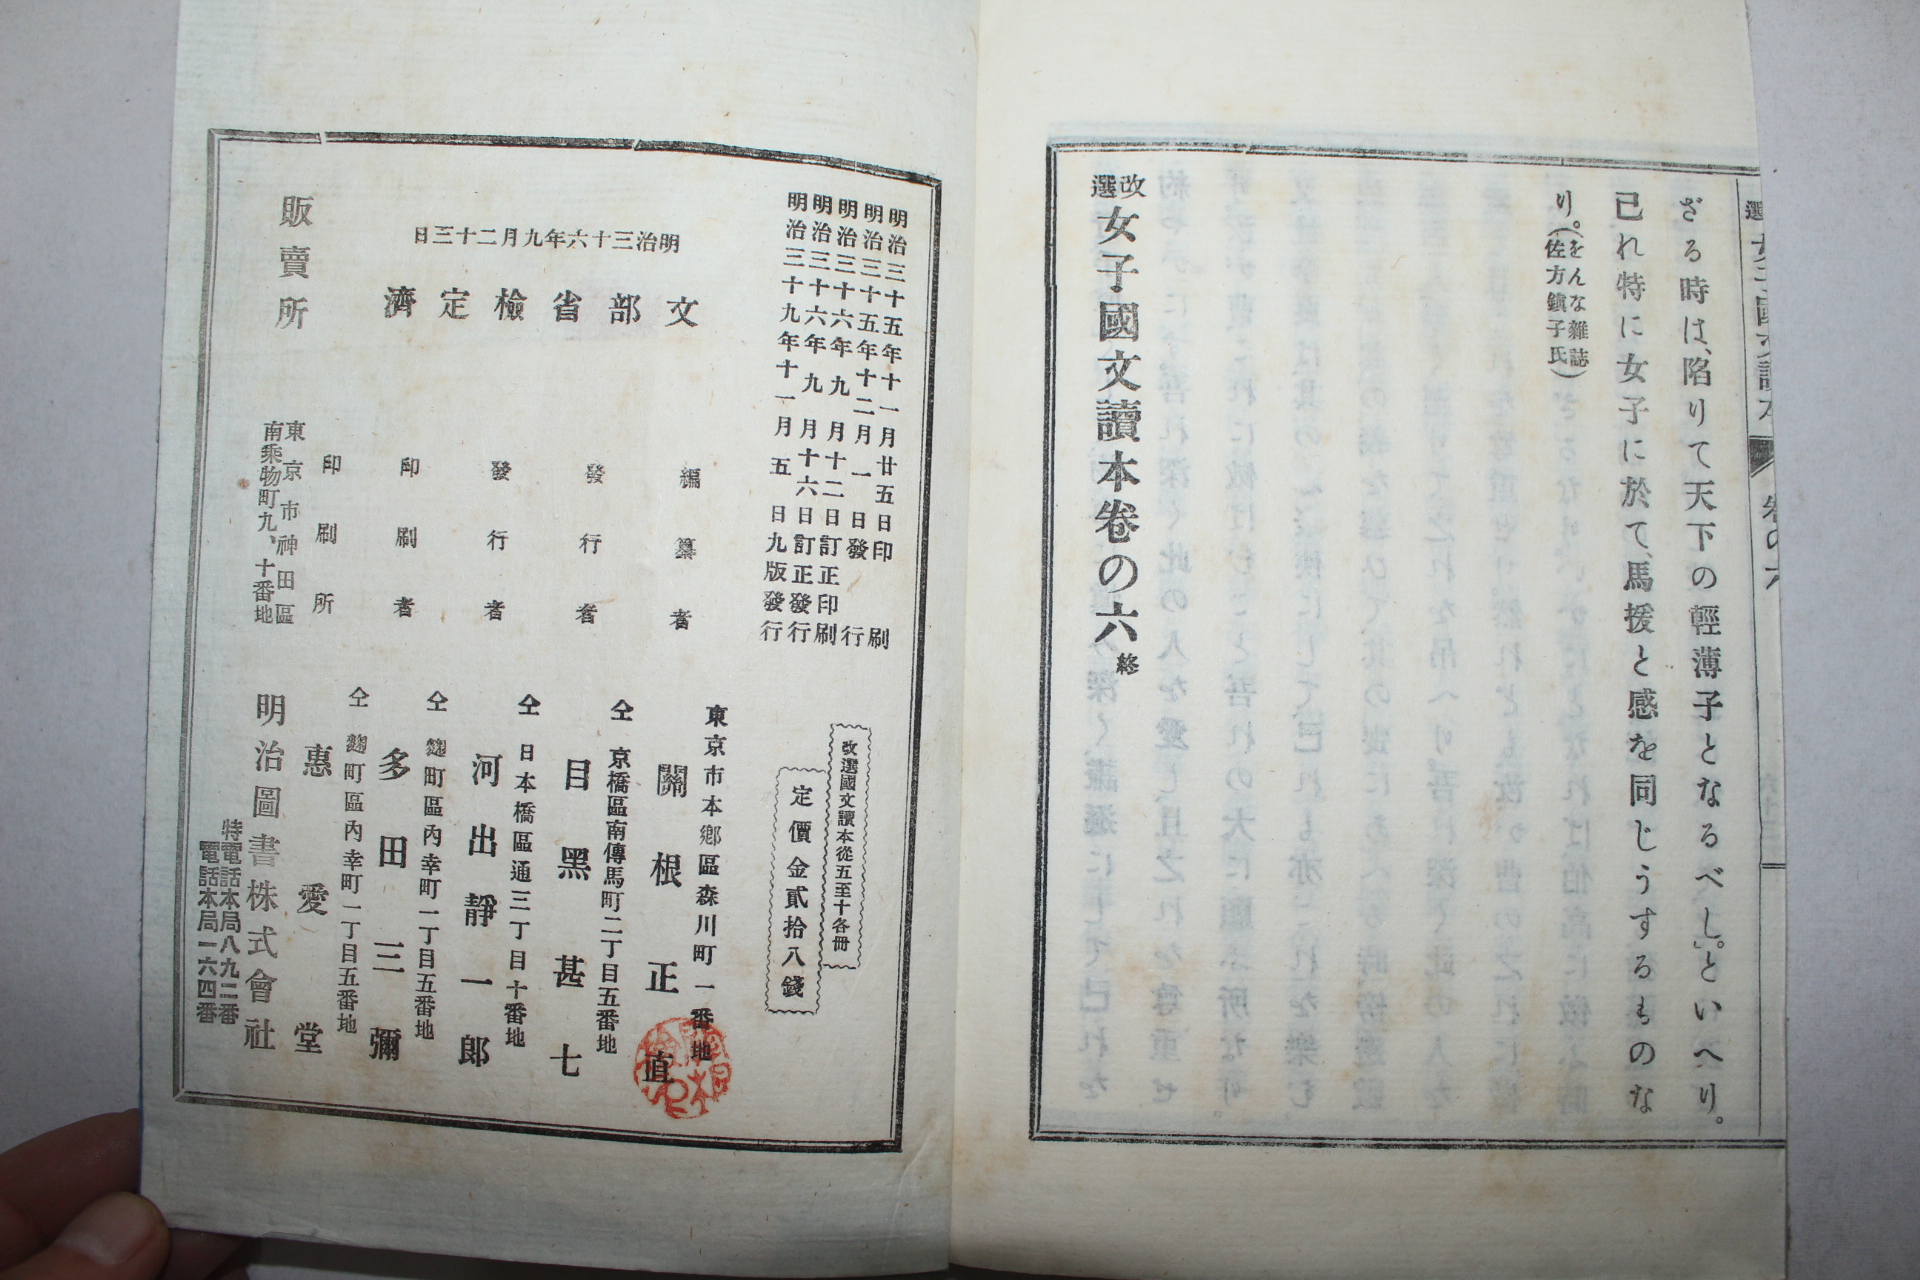 ざる時は、陷りて天下の輕薄子となるべし。」といへり。
己れ特に女子に於て、馬援と感を同じうするものな
り。(をんな雜誌)
(佐方鎭子氏)
改選 女子國文讀本卷の六 終
明治三十五年十一月廿五日印刷
明治三十五年十二月一日發行
明治三十六年九月十二日訂正印刷
明治三十六年九月十六日訂正發行
明治三十九年十一月五日九版發行
改選國文讀本從五至十各冊
定價金貳拾八錢
明治三十六年九月二十三日
文部省檢定濟
編纂者
東京市本鄕區森川町一番地
關根正直
發行者
仝京橋區南傳馬町二丁目五番地
目黑甚七
發行者
仝日本橋區通三丁目十番地
河出靜一郎
印刷者
仝麴町區內幸町一丁目五番地
多田三彌
印刷所
仝麴町區內幸町一丁目五番地
惠愛堂
販賣所
東京市神田區
南乘物町九、十番地
明治圖書株式會社
特電話本局八九二番
電話本局一六四番